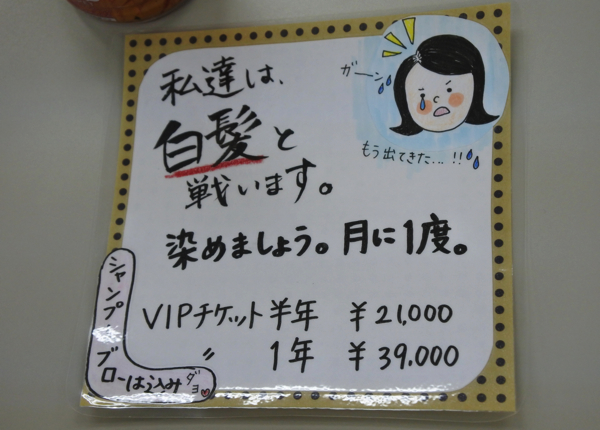 私達は、
白髪と
戦います。
ガーン
もう出てきた...!!
染めましょう。月に1度。
VIPチケット半年 ¥21,000
〃 1年 ¥39,000
シャンプー・
ブローは込みダヨ